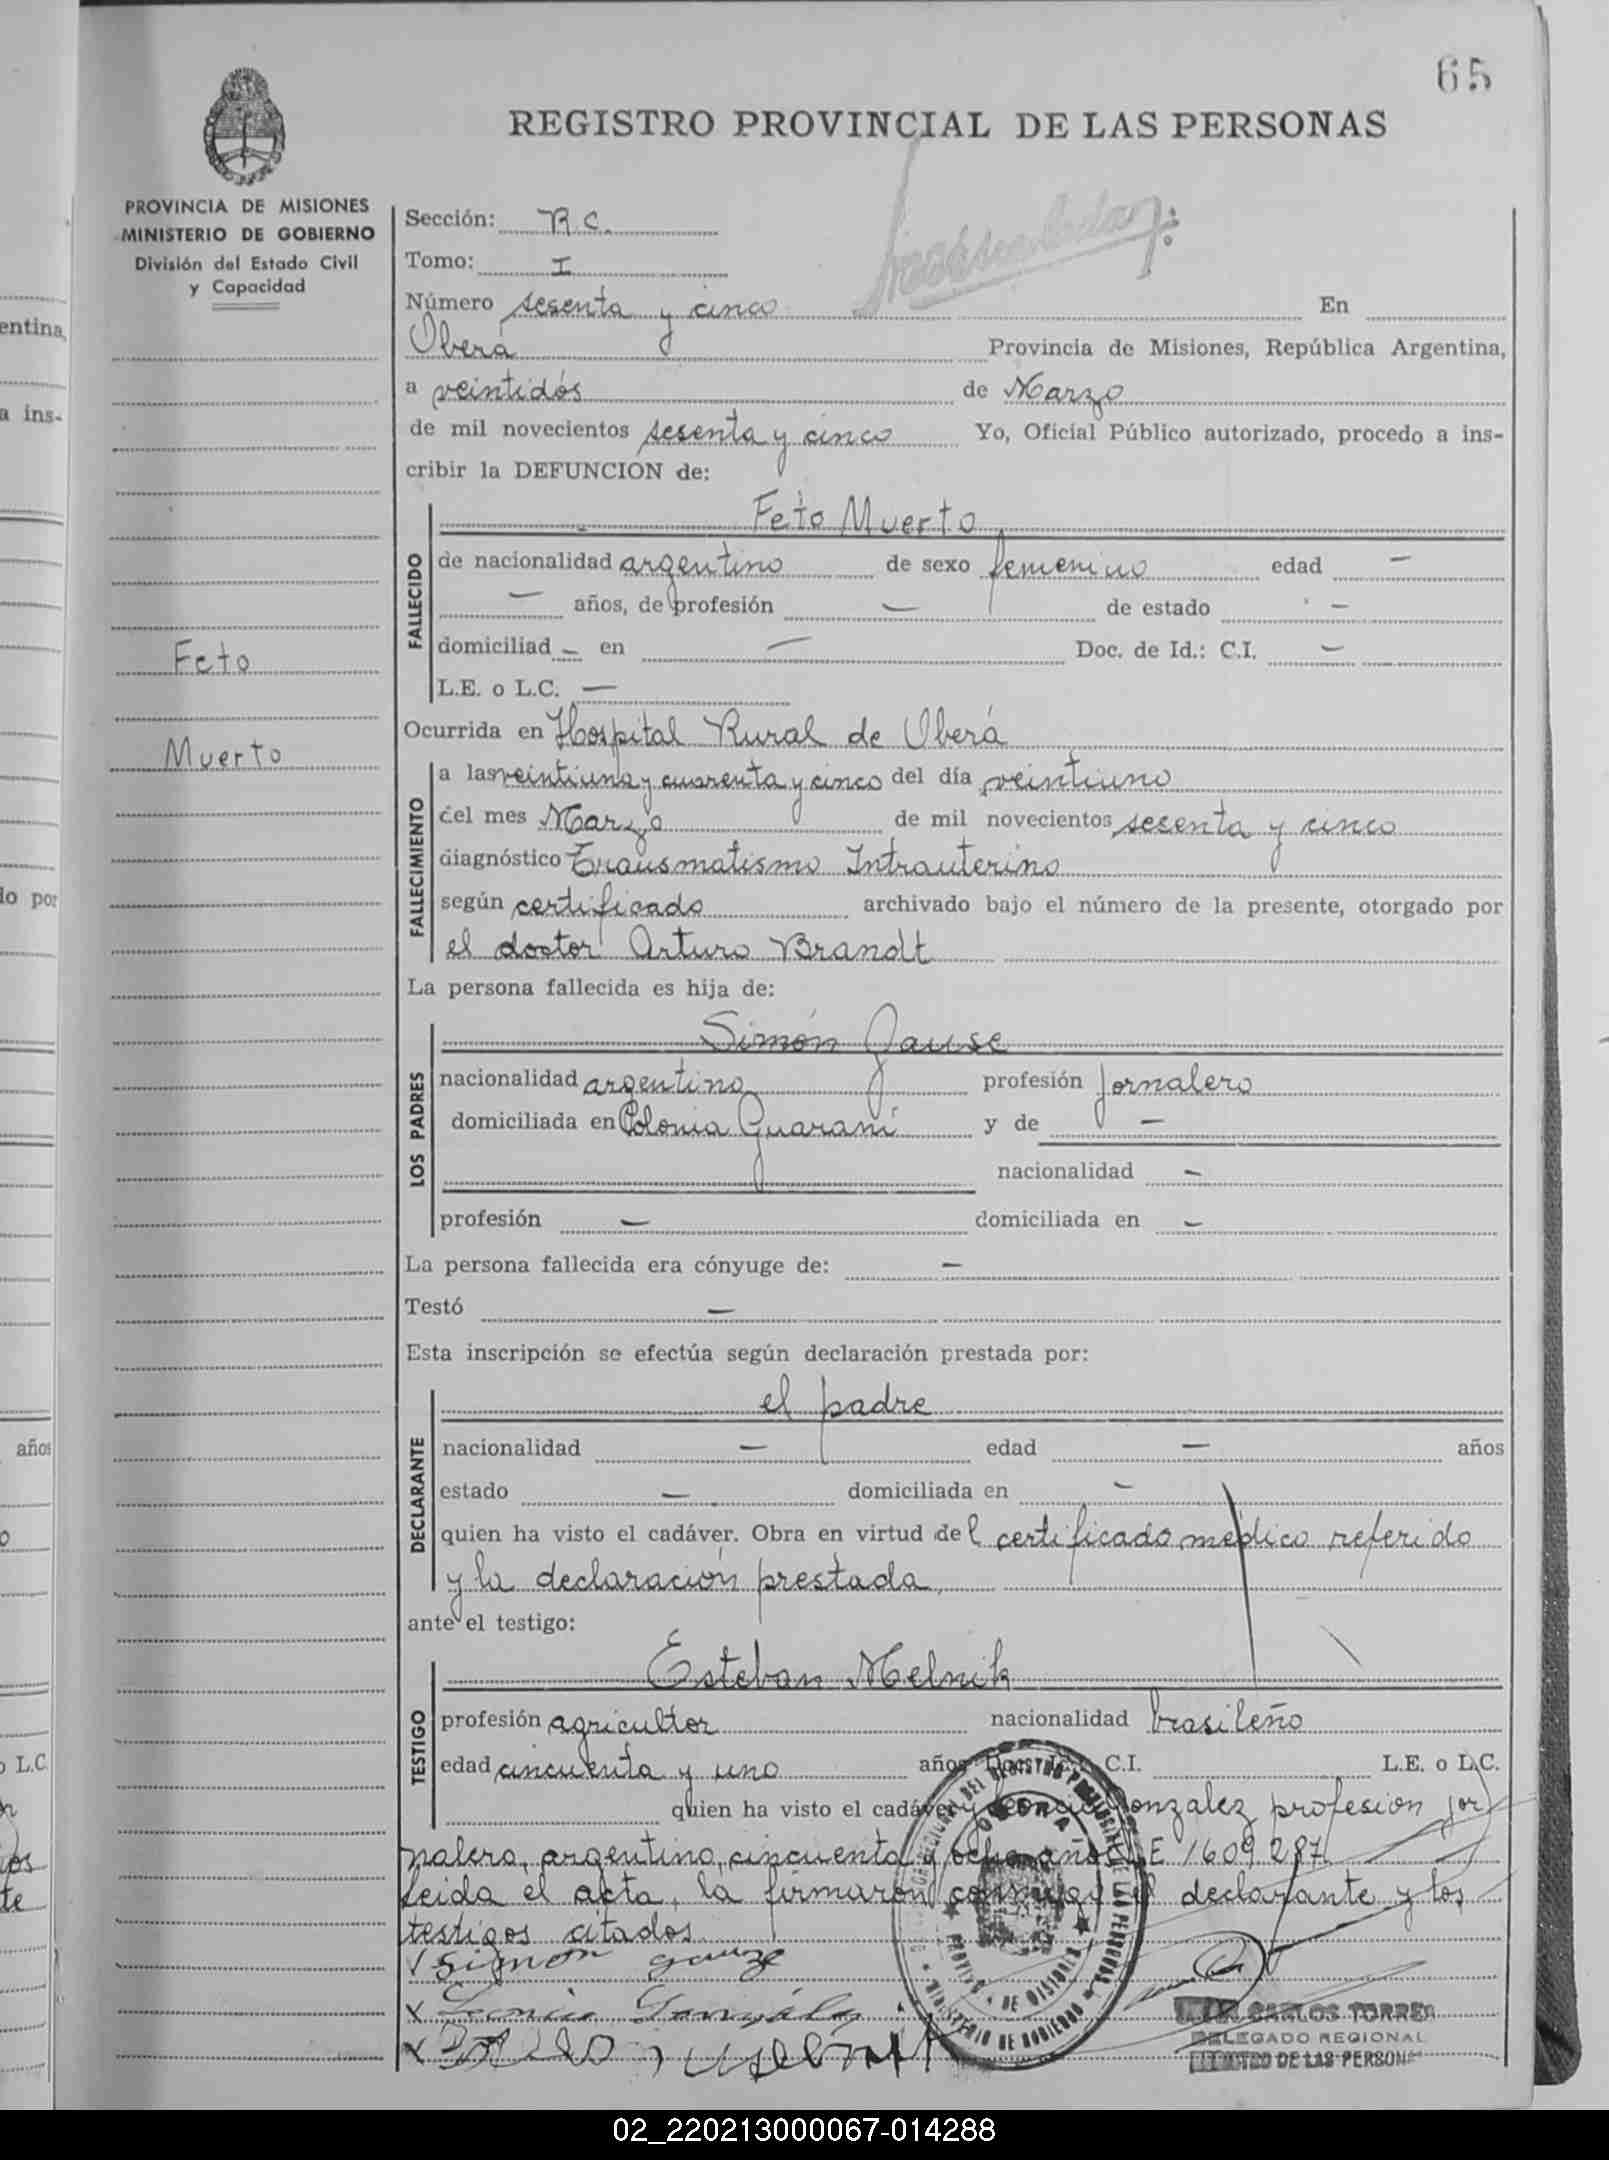 65
REGISTRO PROVINCIAL DE LAS PERSONAS
PROVINCIA DE MISIONES
MINISTERIO DE GOBIERNO
División del Estado Civil
y Capacidad
Feto
Muerto
Sección: R.C.
Tomo: I
Número sesenta y cinco En
Oberá Provincia de Misiones, República Argentina,
a veintidós de Marzo
de mil novecientos sesenta y cinco Yo, Oficial Público autorizado, procedo a ins-
cribir la DEFUNCION de:
FALLECIDO
Feto Muerto
de nacionalidad argentino de sexo femenino edad —
— años, de profesión — de estado —
domiciliad — en — Doc. de Id.: C.I. —
L.E. o L.C. —
Ocurrida en Hospital Rural de Oberá
FALLECIMIENTO
a las veintiuna y cuarenta y cinco del día veintiuno
del mes Marzo de mil novecientos sesenta y cinco
diagnóstico Trausmatismo Intrauterino
según certificado archivado bajo el número de la presente, otorgado por
el doctor Arturo Brandt
La persona fallecida es hija de:
LOS PADRES
Simón Gause
nacionalidad argentino profesión jornalero
domiciliada en Colonia Guaraní y de —
nacionalidad —
profesión — domiciliada en —
La persona fallecida era cónyuge de: —
Testó —
Esta inscripción se efectúa según declaración prestada por:
DECLARANTE
el padre
nacionalidad — edad — años
estado — domiciliada en —
quien ha visto el cadáver. Obra en virtud del certificado médico referido
y la declaración prestada,
ante el testigo:
TESTIGO
Esteban Melnik
profesión agricultor nacionalidad brasileño
edad cincuenta y uno años Doc. Id.: C.I. L.E. o L.C.
quien ha visto el cadáver y Gonzalez profesión jor
nalero, argentino, cincuenta y ocho años L.E 1609287
leida el acta, la firmaron conmigo el declarante y los
testigos citados.
Simón gauze
CARLOS TORRES
DELEGADO REGIONAL
REGISTRO DE LAS PERSONAS
PROVINCIA DE MISIONES
MINISTERIO DE GOBIERNO
02_220213000067-014288